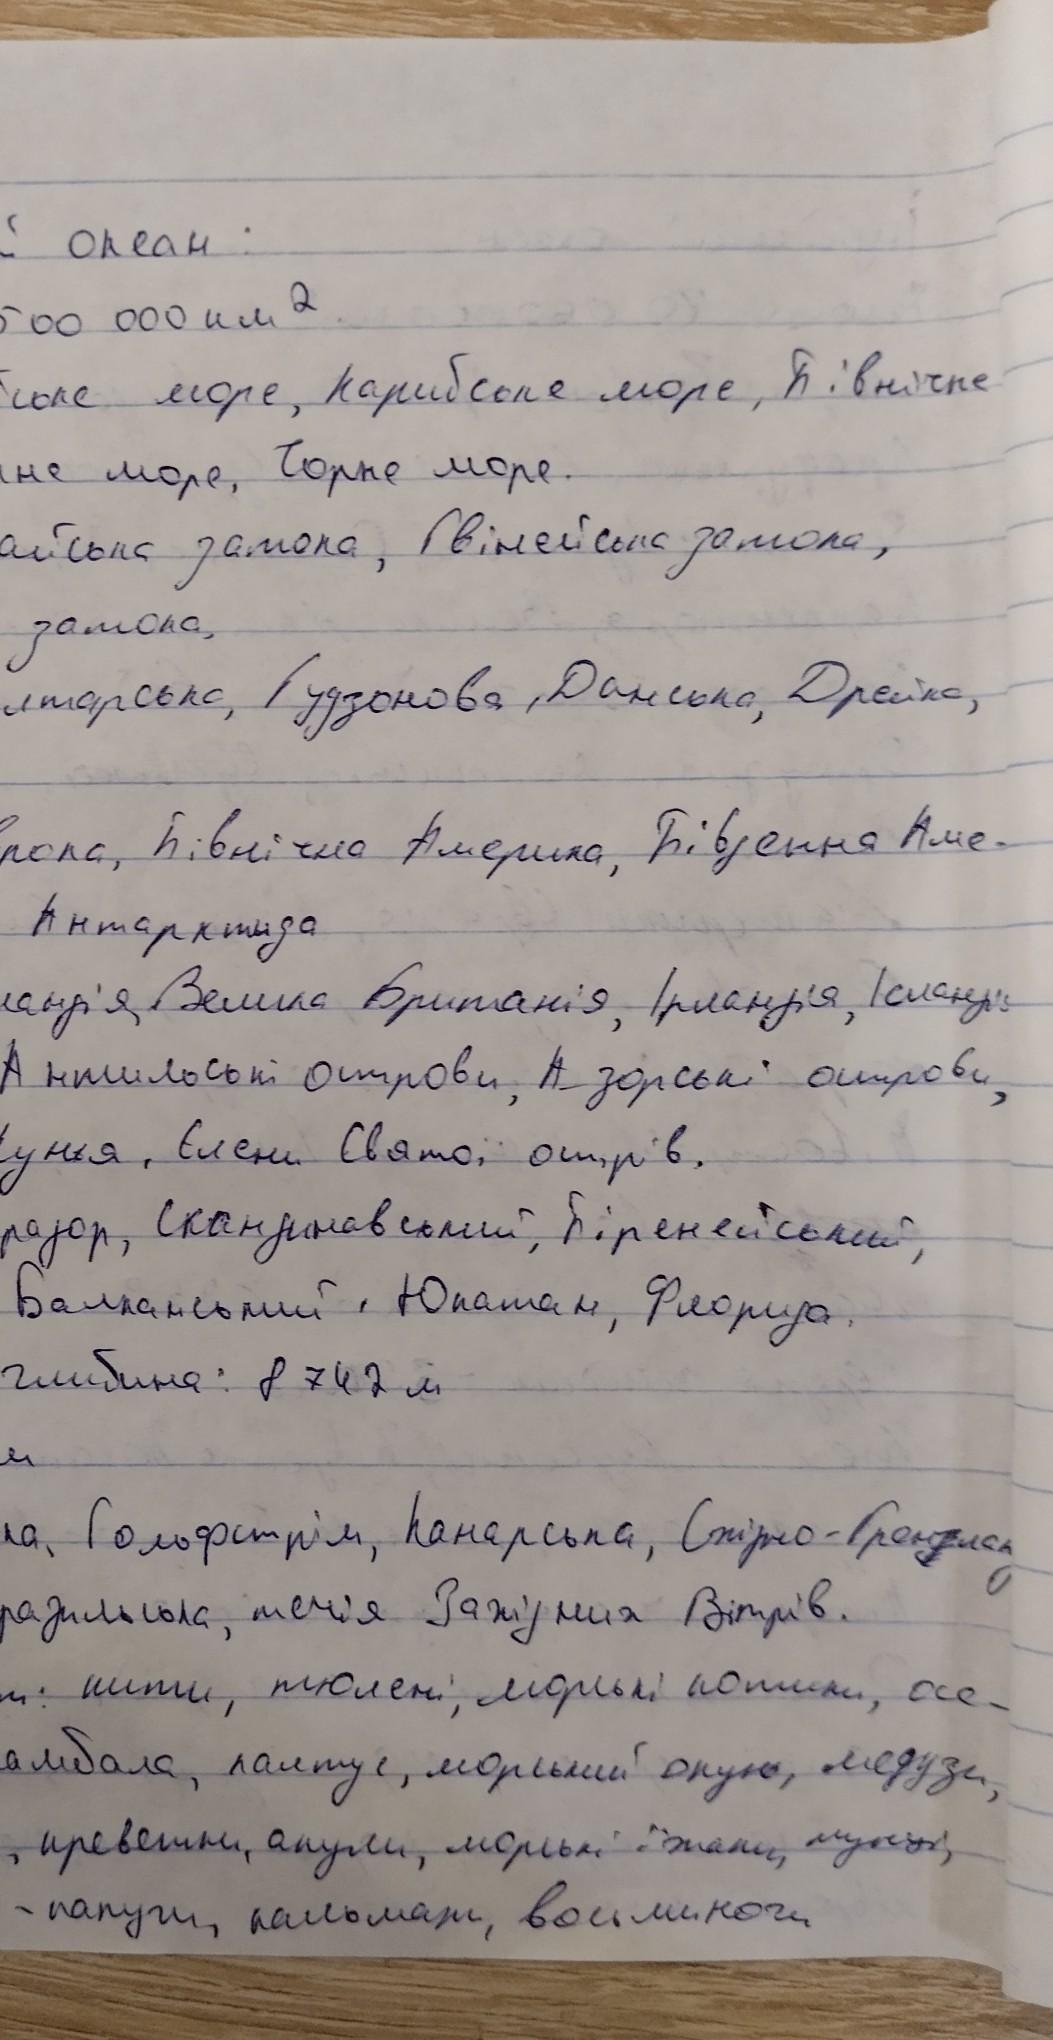 й океан:
500 000 км²
ське море, Карибське море, Північне
не море, Чорне море.
айська затока, Гвінейська затока,
затока,
лтарська, Гудзонова, Данська, Дрейка,
ропа, Північна Америка, Південна Аме-
Антарктида
ландія, Велика Британія, Ірландія, Ісландія
Антильські острови, Азорські острови,
кунья, Єлени Святої острів.
радор, Скандинавський, Піренейський,
Балканський, Юкатан, Флорида.
глибина: 8 742 м
м
ка, Гольфстрім, Канарська, Східно-Гренлан
разильська, течія Західних Вітрів.
т: кити, тюлені, морські котики, осе-
амбала, палтус, морський окунь, медузи,
, креветки, акули, морські їжаки,
-папуги, кальмари, восьминоги